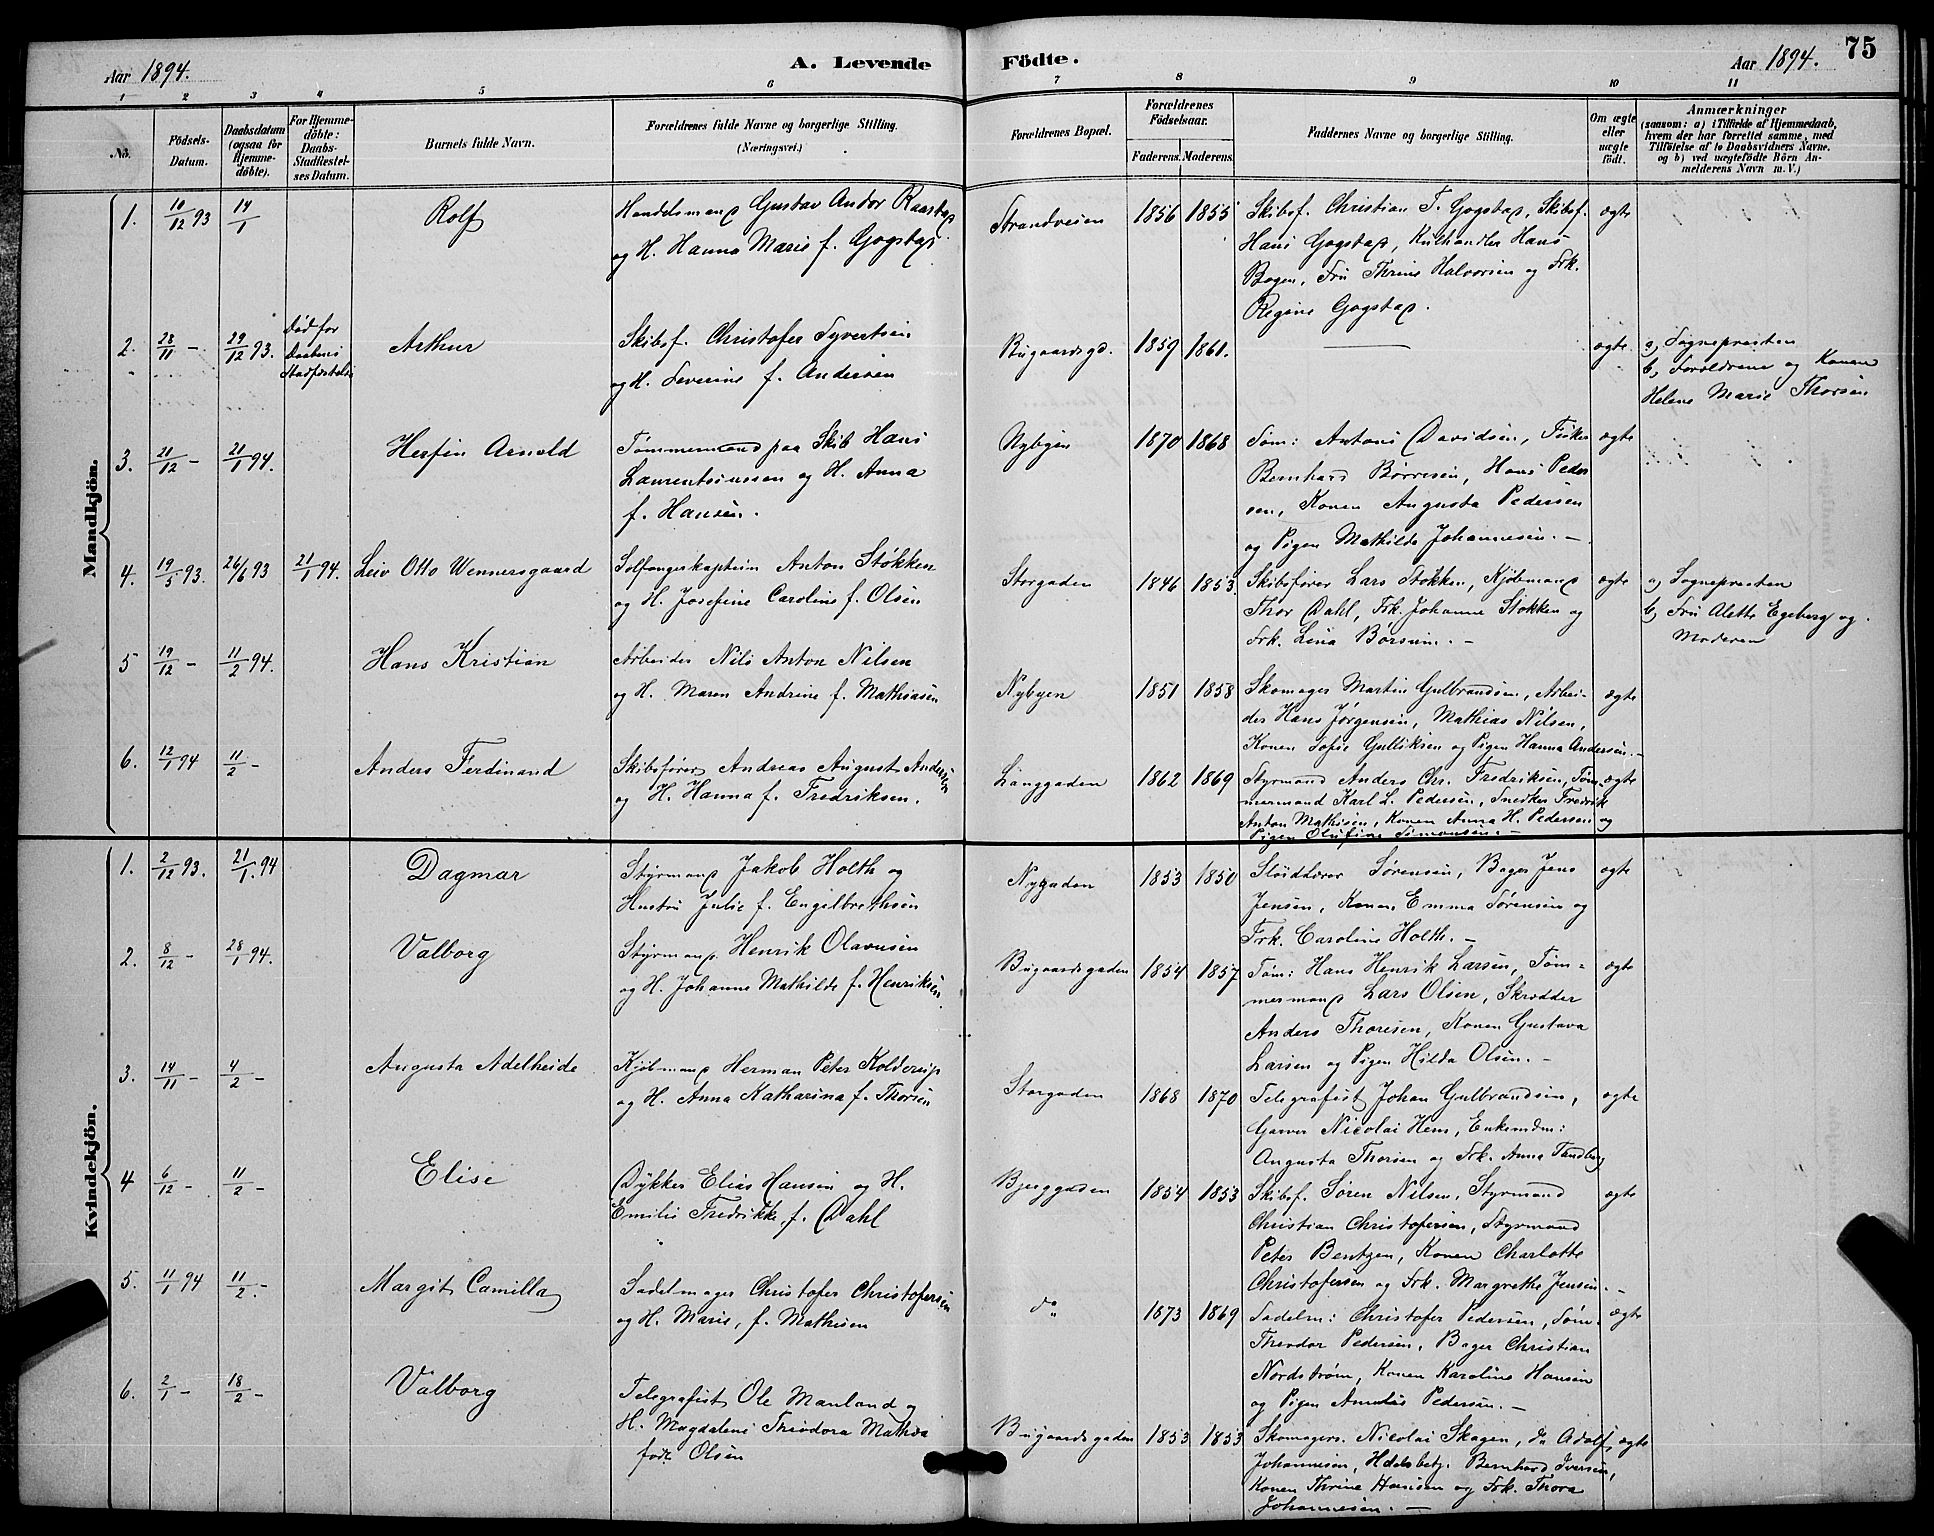 Aar 1894.
A. Levende
Födte.
Aar 1894.
75
1 2 3 4 5 6 7 8 9 10 11
No.
Födsels-
Datum.
Daabsdatum
(ogsaa for
Hjemme-
døbte).
For Hjemme-
døbte:
Daabs-
Stadfæstel-
ses Datum.
Barnets fulde Navn.
Forældrenes fulde Navne og borgerlige Stilling.
(Næringsvei.)
Forældrenes Bopæl.
Forældrenes
Fødselsaar.
Faderens. Moderens.
Faddernes Navne og borgerlige Stilling.
Om ægte
eller
uægte
født.
Anmærkninger
(saasom: a) i Tilfælde af Hjemmedaab,
hvem der har forrettet samme, med
Tilføielse af to Daabsvidners Navne.
og b) ved uægtefødte Börn An-
melderens Navn m. V.)
Mandkjön.
1. 10/12 93 14/1 Rolf
Handelsmand Gustav Andor Raastad
og H. Hanna Marie f. Gogstad.
Strandveien 1856 1855
Skibsf. Christian T. Gogstad, Skibsf.
Hans Gogstad, Kulhandler Hans
Bogen, Fru Thrine Halvorsen og Frk.
Regine Gogstad.
ægte
2. 28/11 - 29/12 93.
Død før
Daabens
Stadfæstelse
Arthur
Skibsf. Christofer Syvertsen
og H. Severine f. Andersen
Bugaardsgd. 1859 1861.
ægte.
a, Sognepresten
b, Forældrene og Konen
Helene Marie Thorsen
3. 21/12 - 21/1 94. Herfin Arnold
Tømmermand paa Skib Hans
Laurentsiussen og H. Anna
f. Hansen.
Nybyen 1870 1868
Tøm: Antoni Davidsen, Fisker
Bernhard Børresen, Hans Peder
sen, Konen Augusta Pedersen
og Pigen Mathilde Johannesen. -
ægte
4. 19/5 93. 26/6 93 21/1 94. Leiv Otto Wennersgaard
Selfangerkaptein Anton Støkken
og H. Josefine Caroline f. Olsen
Storgaden 1846 1853.
Skibsfører Lars Støkken, Kjøbmand
Thor Dahl, Frk. Johanne Støkken og
Frk. Lina Børsum. -
ægte
a, Sognepresten
b, Fru Alette Egeberg og
Moderen
5 19/12 - 11/2 94. Hans Kristian
Arbeider Nils Anton Nilsen
og H. Maren Andrine f. Mathiasen
Nybyen 1851 1858
Skomager Martin Gulbrandsen, Arbei-
der Hans Jørgensen, Mathias Nilsen,
Konen Sofie Gulliksen og Pigen Hanna Andersen. -
ægte
6. 12/1 94 11/2 - Anders Ferdinand
Skibsfører Andreas August Andersen
og H. Hanna f. Fredriksen.
Langgaden 1862 1869
Styrmand Anders Chr. Fredriksen, Tøm-
mermand Karl L. Pedersen, Snedker Fredrik
Anton Mathisen, Konen Anna H. Pedersen og
Pigen Olufine Simonsen. -
ægte
Kvindekjön.
1. 2/12 93. 21/1 94 Dagmar
Styrmand Jakob Holth og
Hustru Julie f. Engelbrethsen
Nygaden 1853 1850
Sløidlærer Sørensen, Bager Jens
Jensen, Konen Emma Sørensen og
Frk. Caroline Holth. -
ægte
2. 8/12 - 28/1 94. Valborg
Styrmand Henrik Olavesen
og H. Johanne Mathilde f. Henriksen
Bugaardsgaden 1854 1857
Tøm: Hans Henrik Larsen, Tøm-
mermand Lars Olsen, Skrædder
Anders Thoresen, Konen Gustava
Larsen og Pigen Hilda Olsen. -
ægte
3. 14/11 - 4/2 - Augusta Adelheide
Kjøbmand Herman Peter Kolderup
og H. Anna Katharina f. Thorsen
Storgaden 1868 1870
Telegrafist Johan Gulbrandsen,
Garver Nicolai Hem, Enkemdm:
Augusta Thorsen og Frk. Anna Tandberg
ægte
4 6/12 - 11/2 - Elise
Dykker Elias Hansen og H.
Emilie Fredrikke f. Dahl
Bjerggaden 1854 1853
Skibsf. Søren Nilsen, Styrmand
Christian Christofersen, Styrmand
Peter Bentzen, Konen Charlotte
Christofersen og Frk. Margrethe Jensen. -
ægte
5. 11/1 94 11/2 - Margit Camilla
Sadelmager Christofer Christofersen
og H. Marie, f. Mathisen
do 1873 1869
Sadelm: Christofer Pedersen, Tøm.
Theodor Pedersen, Bager Christian
Nordstrøm, Konen Karoline Hansen
og Pigen Amalie Pedersen. -
ægte
6. 2/1 - 18/2 - Valborg
Telegrafist Ole Manland og
H. Magdalene Theodora Mathea
født Olsen
Bugaardsgaden 1853 1853
Skomagers. Nicolai Skagen, do Adolf
Johannesen, Hdelsbetj. Bernhard Iversen,
Konen Thrine Hansen og Frk. Thora
Johannesen. -
ægte